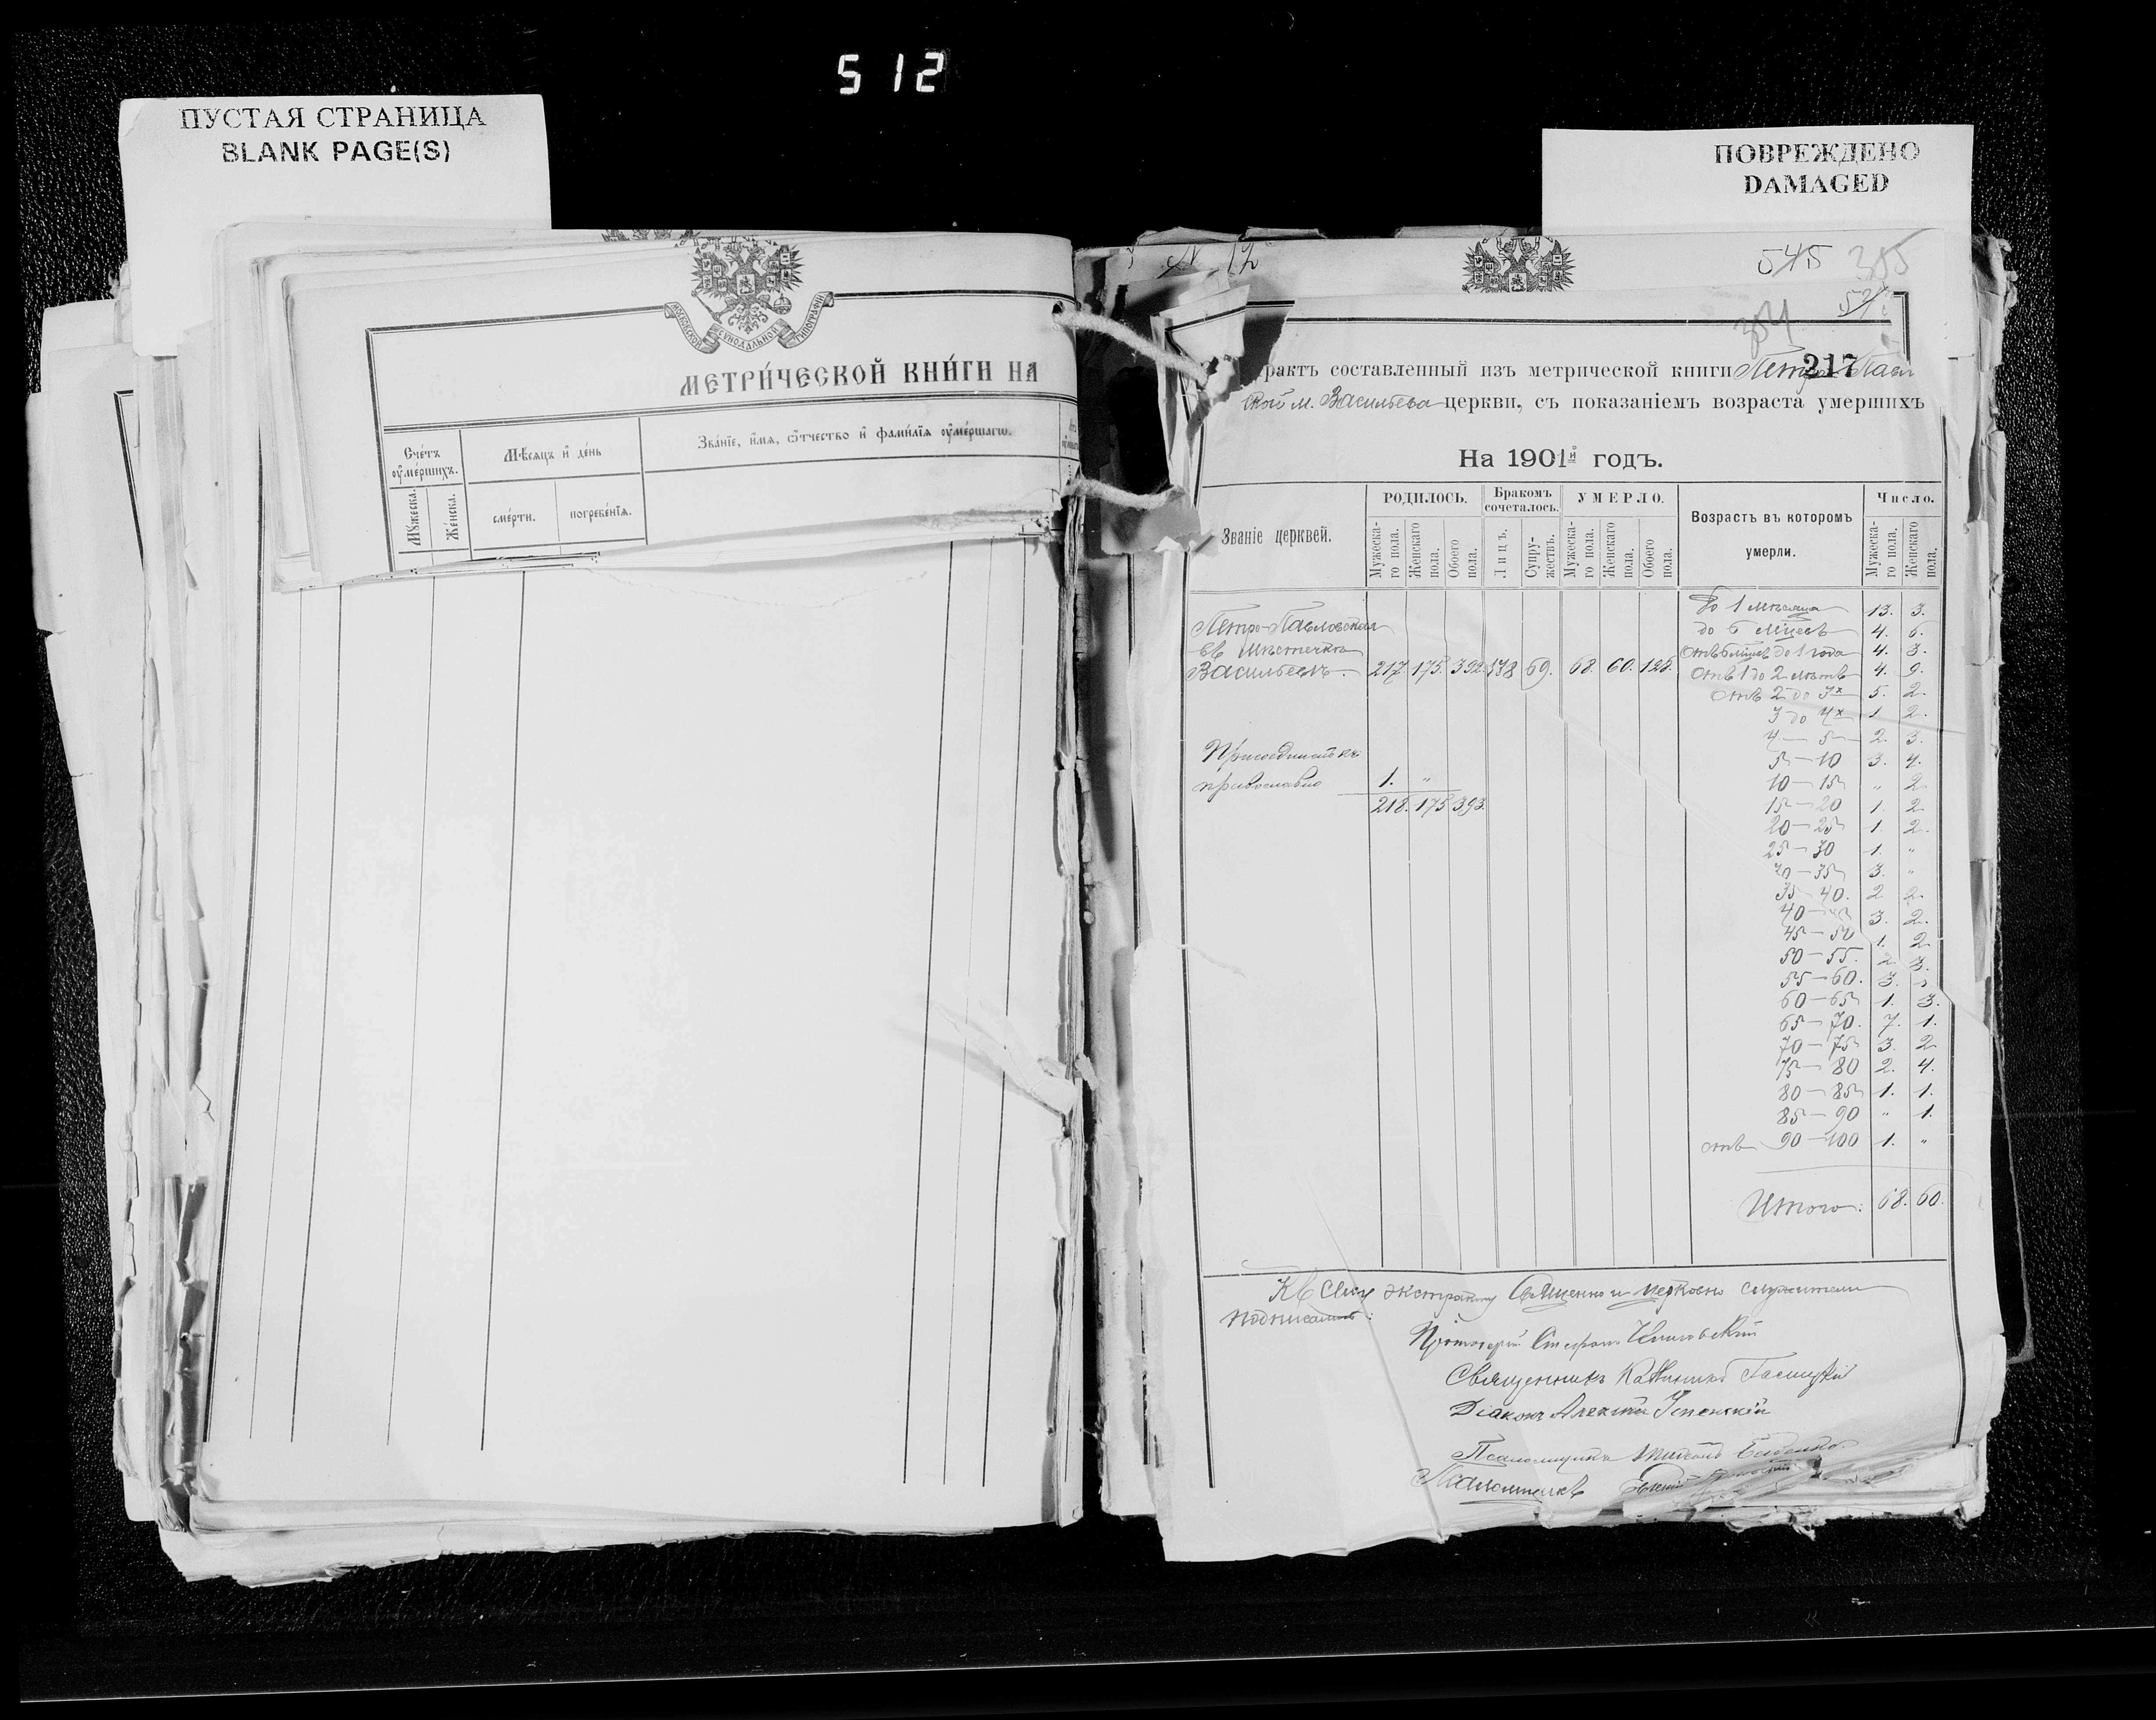 512
ПУСТАЯ СТРАНИЦА
BLANK PAGE(S)
ПОВРЕЖДЕНО
DAMAGED
МОСКОВСКОЙ СѴНОДАЛЬНОЙ ТИПОГРАФІИ
МЕТРИ́ЧЕСКОЙ КНИ́ГИ НА
Сче́тъ оу҆ме́ршихъ.
Мѣ́сяцъ и҆ де́нь
Зва́нїе, и҆́мя, ѻ҆́тчество и҆ фами́лїя оу҆ме́ршагѡ.
Мꙋ́жеска.
Же́нска.
сме́рти.
погребе́нїя.
N 12
545 305
304
217
рактъ составленный изъ метрической книги Петро-Павл
ской м. Васильева церкви, съ показаніемъ возраста умершихъ
На 1901й годъ.
Званіе церквей.
РОДИЛОСЬ.
Бракомъ сочеталось.
УМЕРЛО.
Возрастъ въ которомъ умерли.
Число.
Мужеска-го пола.
Женскаго пола.
Обоего пола.
Лицъ.
Супру-жествъ.
Мужеска-го пола.
Женскаго пола.
Обоего пола.
Мужеска-го пола.
Женскаго пола.
До 1 мѣсяца 13. 3.
Петро-Павловская
до 6 мѣсяц 4. 6.
въ мѣстечкѣ
Отъ 6 мѣсяц до 1 года 4. 3.
Васильевѣ. 217. 175. 392. 138 69. 68. 60. 128.
Отъ 1 до 2 лѣтъ 4. 9.
Отъ 2 до 3х 5. 2.
3 до 4х 1. 2.
4 — 5 2. 3.
Присоединенъ къ
5 — 10 3. 4.
православію 1. "
10 — 15 " 2
218. 175 393.
15 — 20 1. 2.
20 — 25 1. 2.
25 — 30 1. "
30 — 35 3. "
35 40. 2 2.
40 — 45 3. 2.
45 — 50 1. 2
50 — 55. 2. 3.
55 — 60. 3.
60 — 65 1. 3.
65 — 70. 7. 1.
70 — 75 3. 2
75 — 80 2. 4.
80 — 85 1. 1.
85 — 90 " 1.
отъ 90 — 100 1. "
Итого: 68. 60.
Къ сему экстракту Священно и церковно служители
подписались:
Протоіерей Стефанъ
Священникъ
Діаконъ Алексій Успенскій
Псаломщикъ
Псаломщикъ